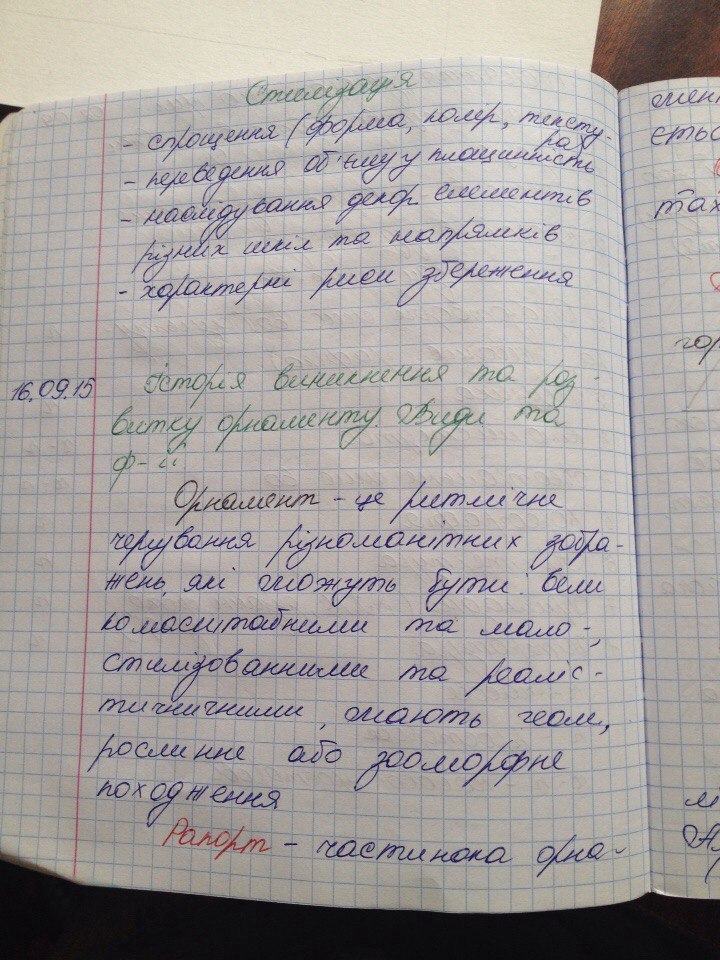 Стилізація
- спрощення (форма, колір, тексту-
ра)
- переведення об'єму у площинність
- наслідування декор елементів
різних шкіл та напрямків
- характерні риси збереження
16.09.15
Історія виникнення та роз-
витку орнаменту. Види та
ф-ії.
Орнамент - це ритмічне
чергування різноманітних зобра-
жень, які можуть бути: вели
комасштабними та мало-,
стилізованними та реаліс-
тичничними, мають геом.,
рослинне або зооморфне
походження
Рапорт - частинка орна-
мен
ється
тах
гор
м